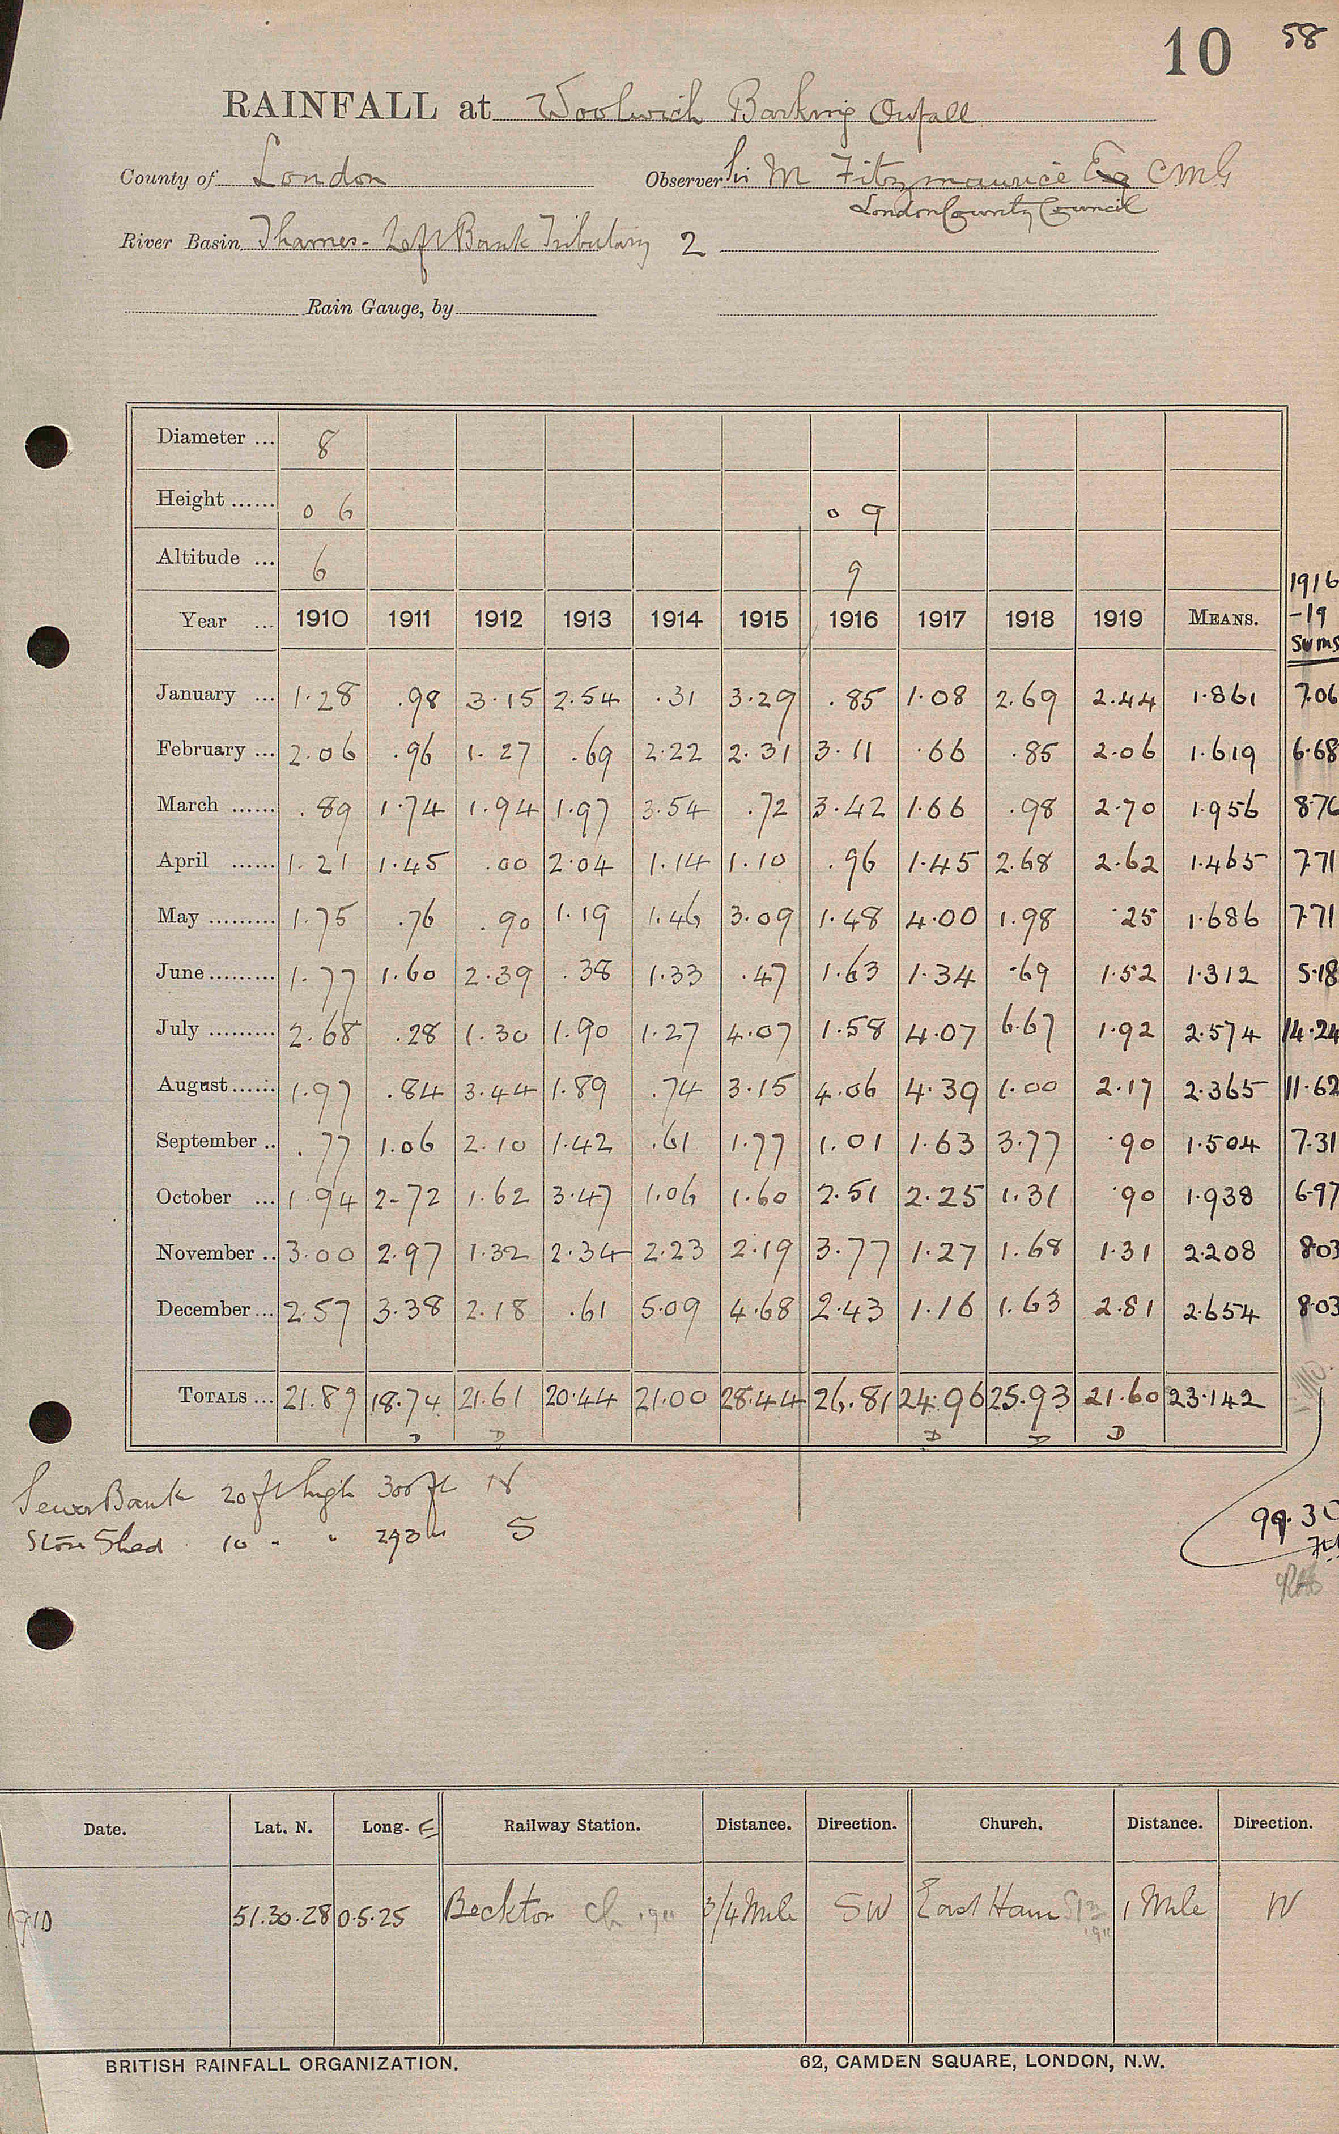 10 58
RAINFALL at Woolwich Barking Oufall
County of London Observer Sir M Fitzmaurice Esq CMG
London County Council
River Basin Thames - Left Bank Tributary 2
Rain Gauge, by
Diameter ... 8
Height ...... 0 6 0 9
Altitude ... 6 9
1916
Year ... 1910 1911 1912 1913 1914 1915 1916 1917 1918 1919 MEANS. -19
Sums
January ... 1.28 .98 3.15 2.54 .31 3.29 .85 1.08 2.69 2.44 1.861 7.06
February ... 2.06 .96 1.27 .69 2.22 2.31 3.11 .66 .85 2.06 1.619 6.68
March ...... .89 1.74 1.94 1.97 3.54 .72 3.42 1.66 .98 2.70 1.956 8.76
April ...... 1.21 1.45 .00 2.04 1.14 1.10 .96 1.45 2.68 2.62 1.465 7.71
May ......... 1.75 .76 .90 1.19 1.46 3.09 1.48 4.00 1.98 .25 1.686 7.71
June ......... 1.77 1.60 2.39 .38 1.33 .47 1.63 1.34 .69 1.52 1.312 5.18
July ......... 2.68 .28 1.30 1.90 1.27 4.07 1.58 4.07 6.67 1.92 2.574 14.24
August ...... 1.97 .84 3.44 1.89 .74 3.15 4.06 4.39 1.00 2.17 2.365 11.62
September .. .77 1.06 2.10 1.42 .61 1.77 1.01 1.63 3.77 .90 1.504 7.31
October ... 1.94 2.72 1.62 3.47 1.06 1.60 2.51 2.25 1.31 .90 1.938 6.97
November .. 3.00 2.97 1.32 2.34 2.23 2.19 3.77 1.27 1.68 1.31 2.208 8.03
December ... 2.57 3.38 2.18 .61 5.09 4.68 2.43 1.16 1.63 2.81 2.654 8.03
TOTALS ... 21.89 18.74 21.61 20.44 21.00 28.44 26.81 24.96 25.93 21.60 23.142
D D D D D
Sewer Bank 20 ft high 300 ft N
Store Shed 10 " " 293 " S
99.30
Date. Lat. N. Long. E Railway Station. Distance. Direction. Church. Distance. Direction.
1910 51.30.28 0.5.25 Beckton ch 1911 3/4 Mile SW East Ham 1 Mile W
1911
BRITISH RAINFALL ORGANIZATION. 62, CAMDEN SQUARE, LONDON, N.W.